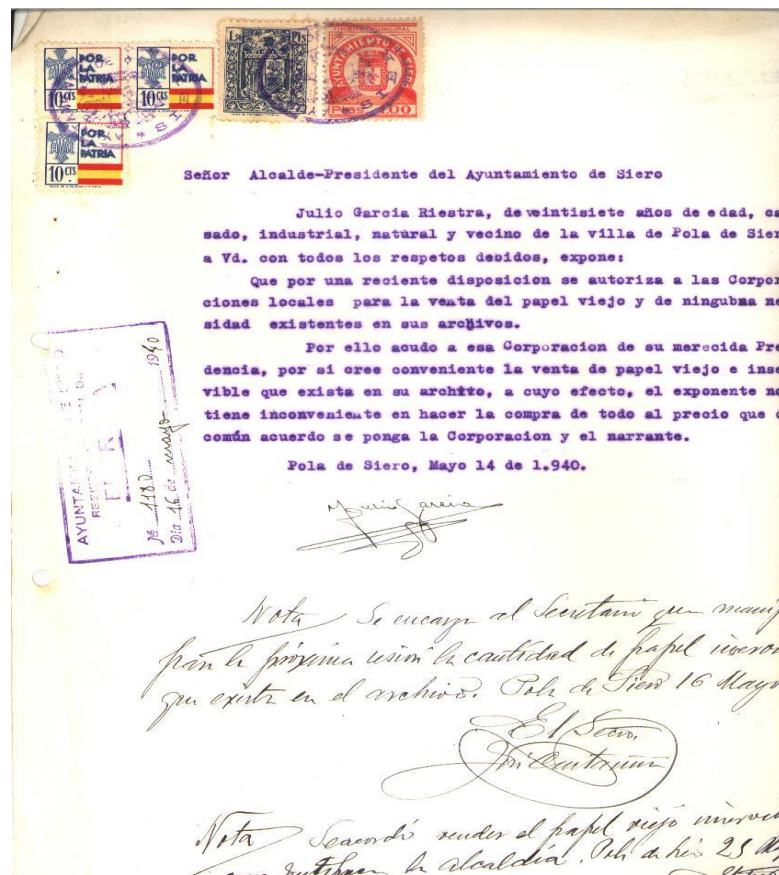 POR
LA
PATRIA
10 CTS
POR
LA
PATRIA
10 CTS
POR
LA
PATRIA
10 CTS
1 Pts
MUNICIPAL
AYUNTAMIENTO DE SIERO
Ptas 1.00
Señor Alcalde-Presidente del Ayuntamiento de Siero
Julio Garcia Riestra, de veintisiete años de edad, ca
sado, industrial, natural y vecino de la villa de Pola de Sier
a Vd. con todos los respetos debidos, expone:
Que por una reciente disposicion se autoriza a las Corpor
ciones locales para la venta del papel viejo y de ningubna ne
sidad existentes en sus archivos.
Por ello acudo a esa Corporacion de su merecida Pre
dencia, por si cree conveniente la venta de papel viejo e inse
vible que exista en su archivo, a cuyo efecto, el exponente no
tiene inconveniente en hacer la compra de todo al precio que
común acuerdo se ponga la Corporacion y el narrante.
Pola de Siero, Mayo 14 de 1.940.
AYUNTA
Nº 1180
Día 16 de mayo 1940
Julio Garcia
Nota Se encarga al Secretario que
para la próxima sesión la cantidad de papel
que exista en el archivo. Pola de Siero 16 Mayo
El Secro.
José
Nota Se acordó vender el papel viejo
la alcaldía. Pola de 23